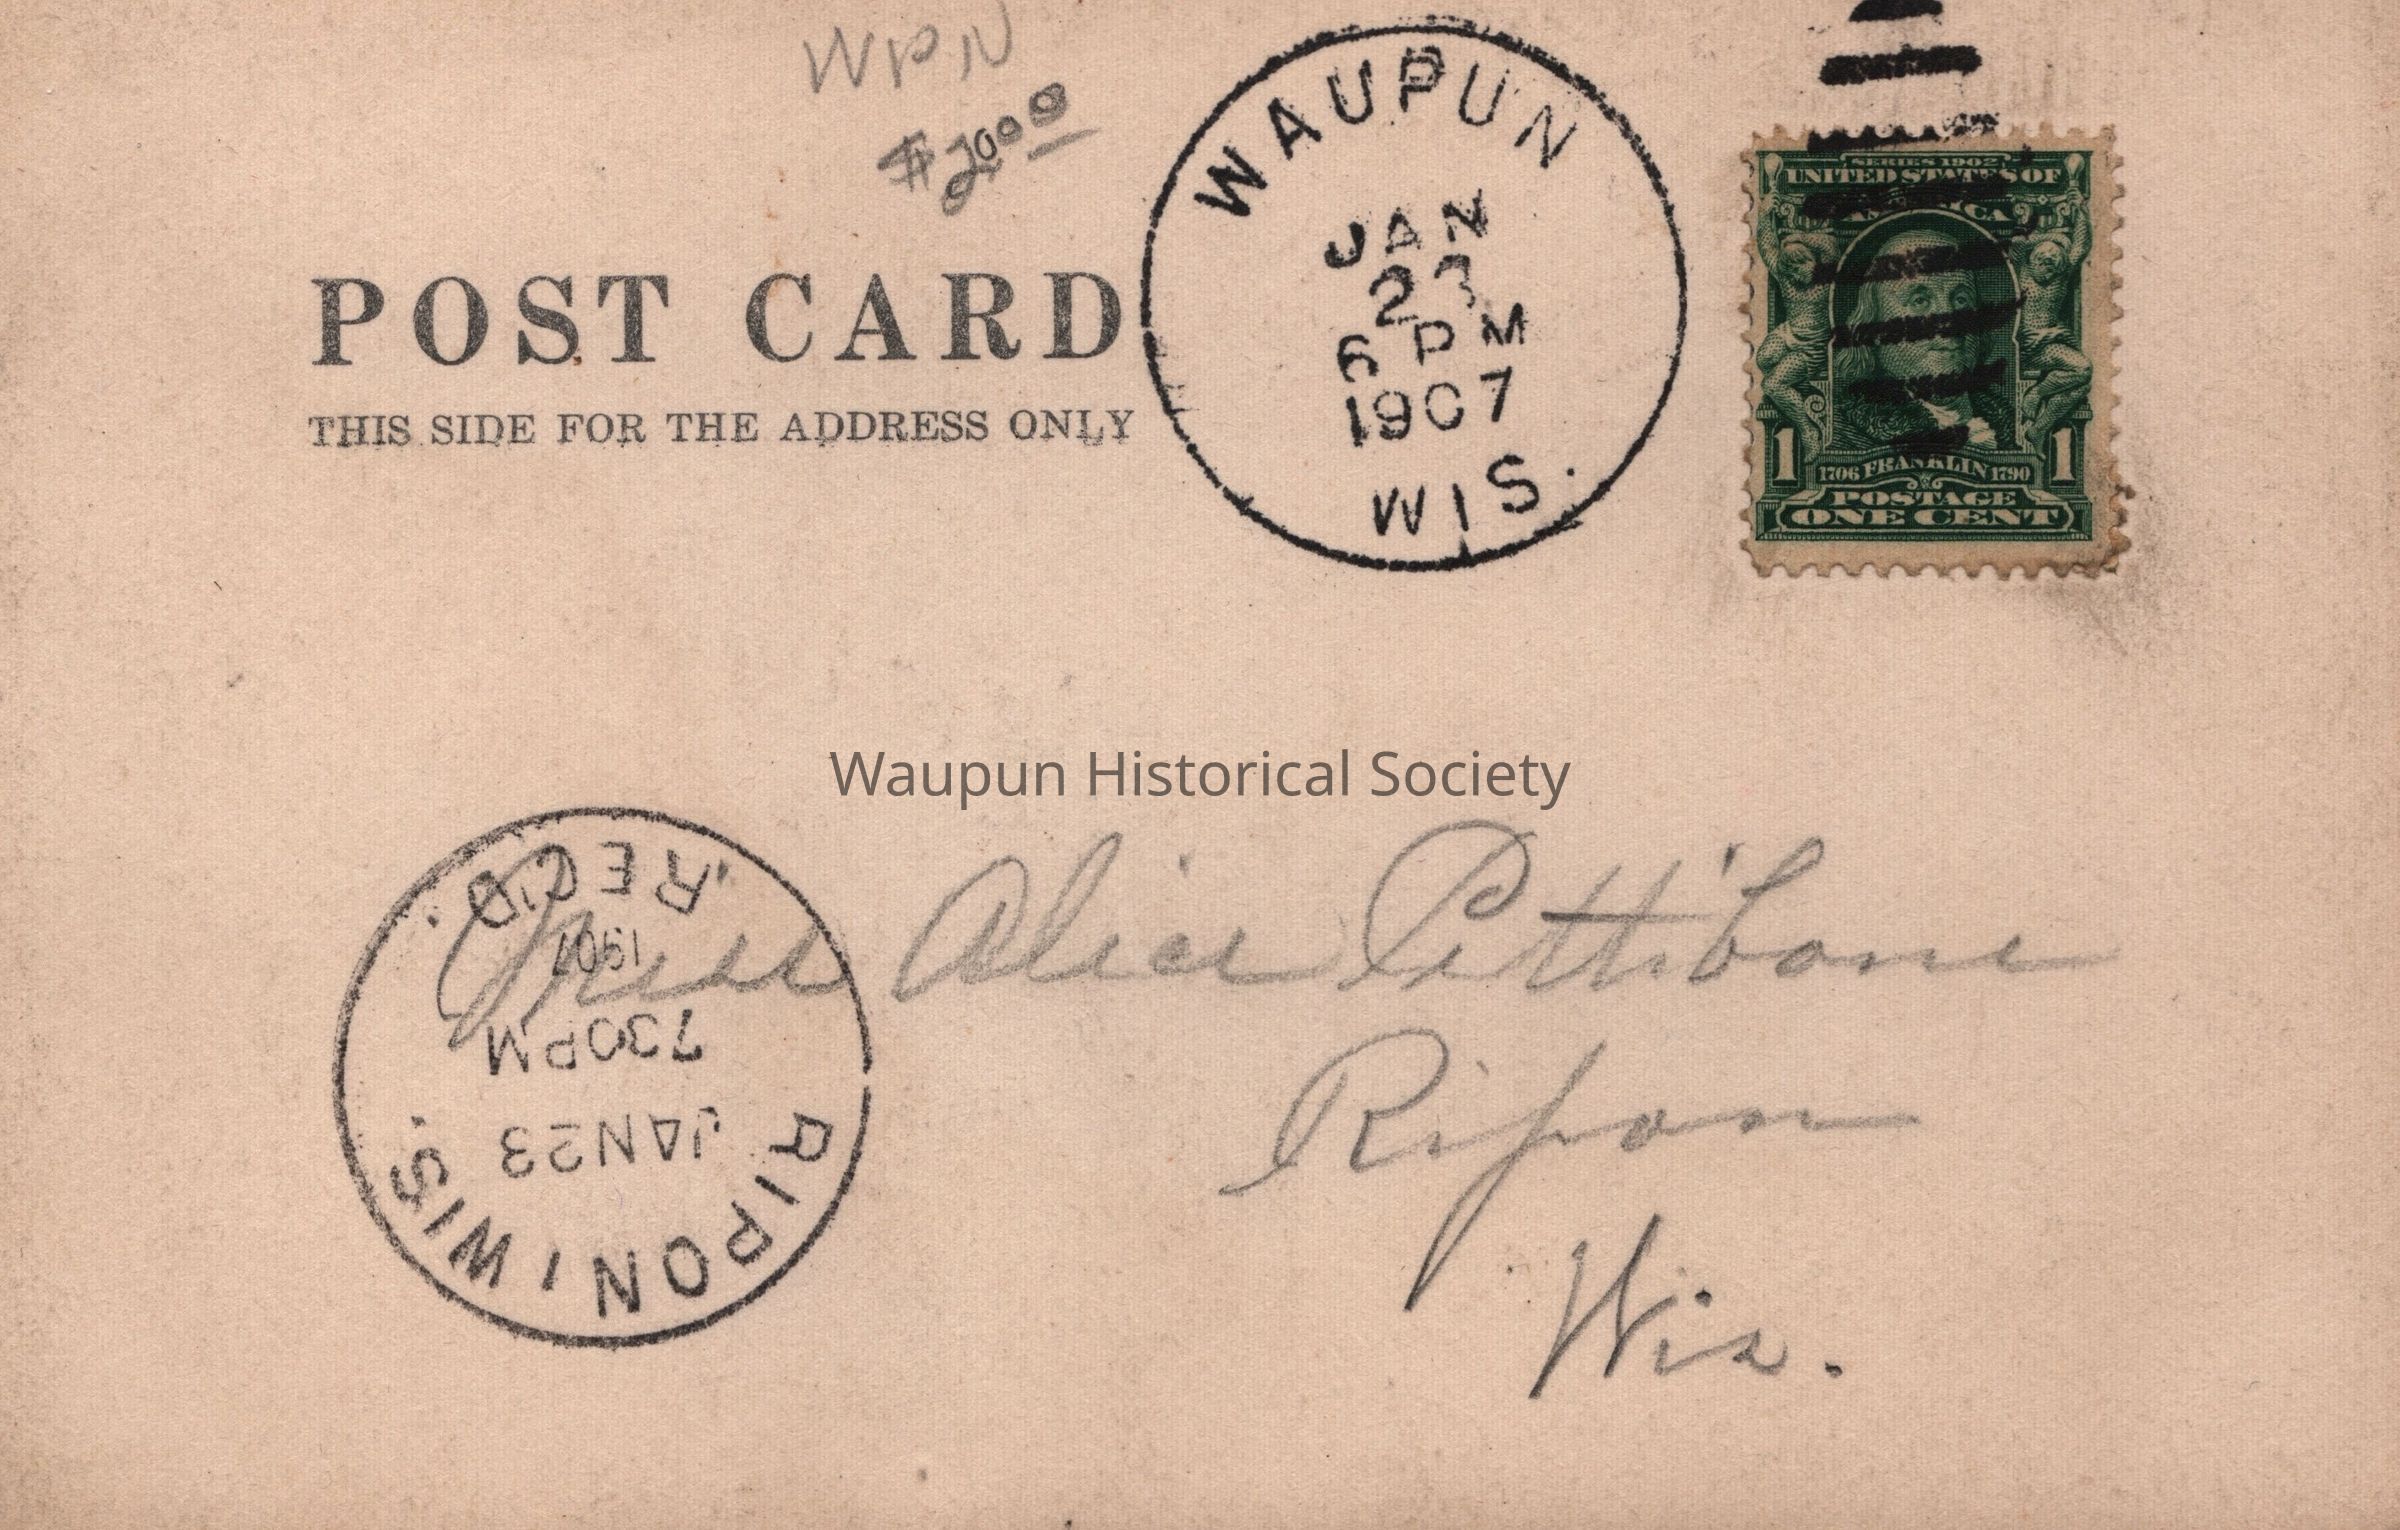 WPN
$20.00
WAUPUN
JAN
23
6 PM
1907
WIS.
SERIES 1902
UNITED STATES OF
AMERICA
1 1
1706 FRANKLIN 1790
POSTAGE
ONE CENT
POST CARD
THIS SIDE FOR THE ADDRESS ONLY
Waupun Historical Society
Miss Alice Pettibone
Ripon
Wis.
RIPON, WIS.
JAN 23
730PM
1907
REC'D.